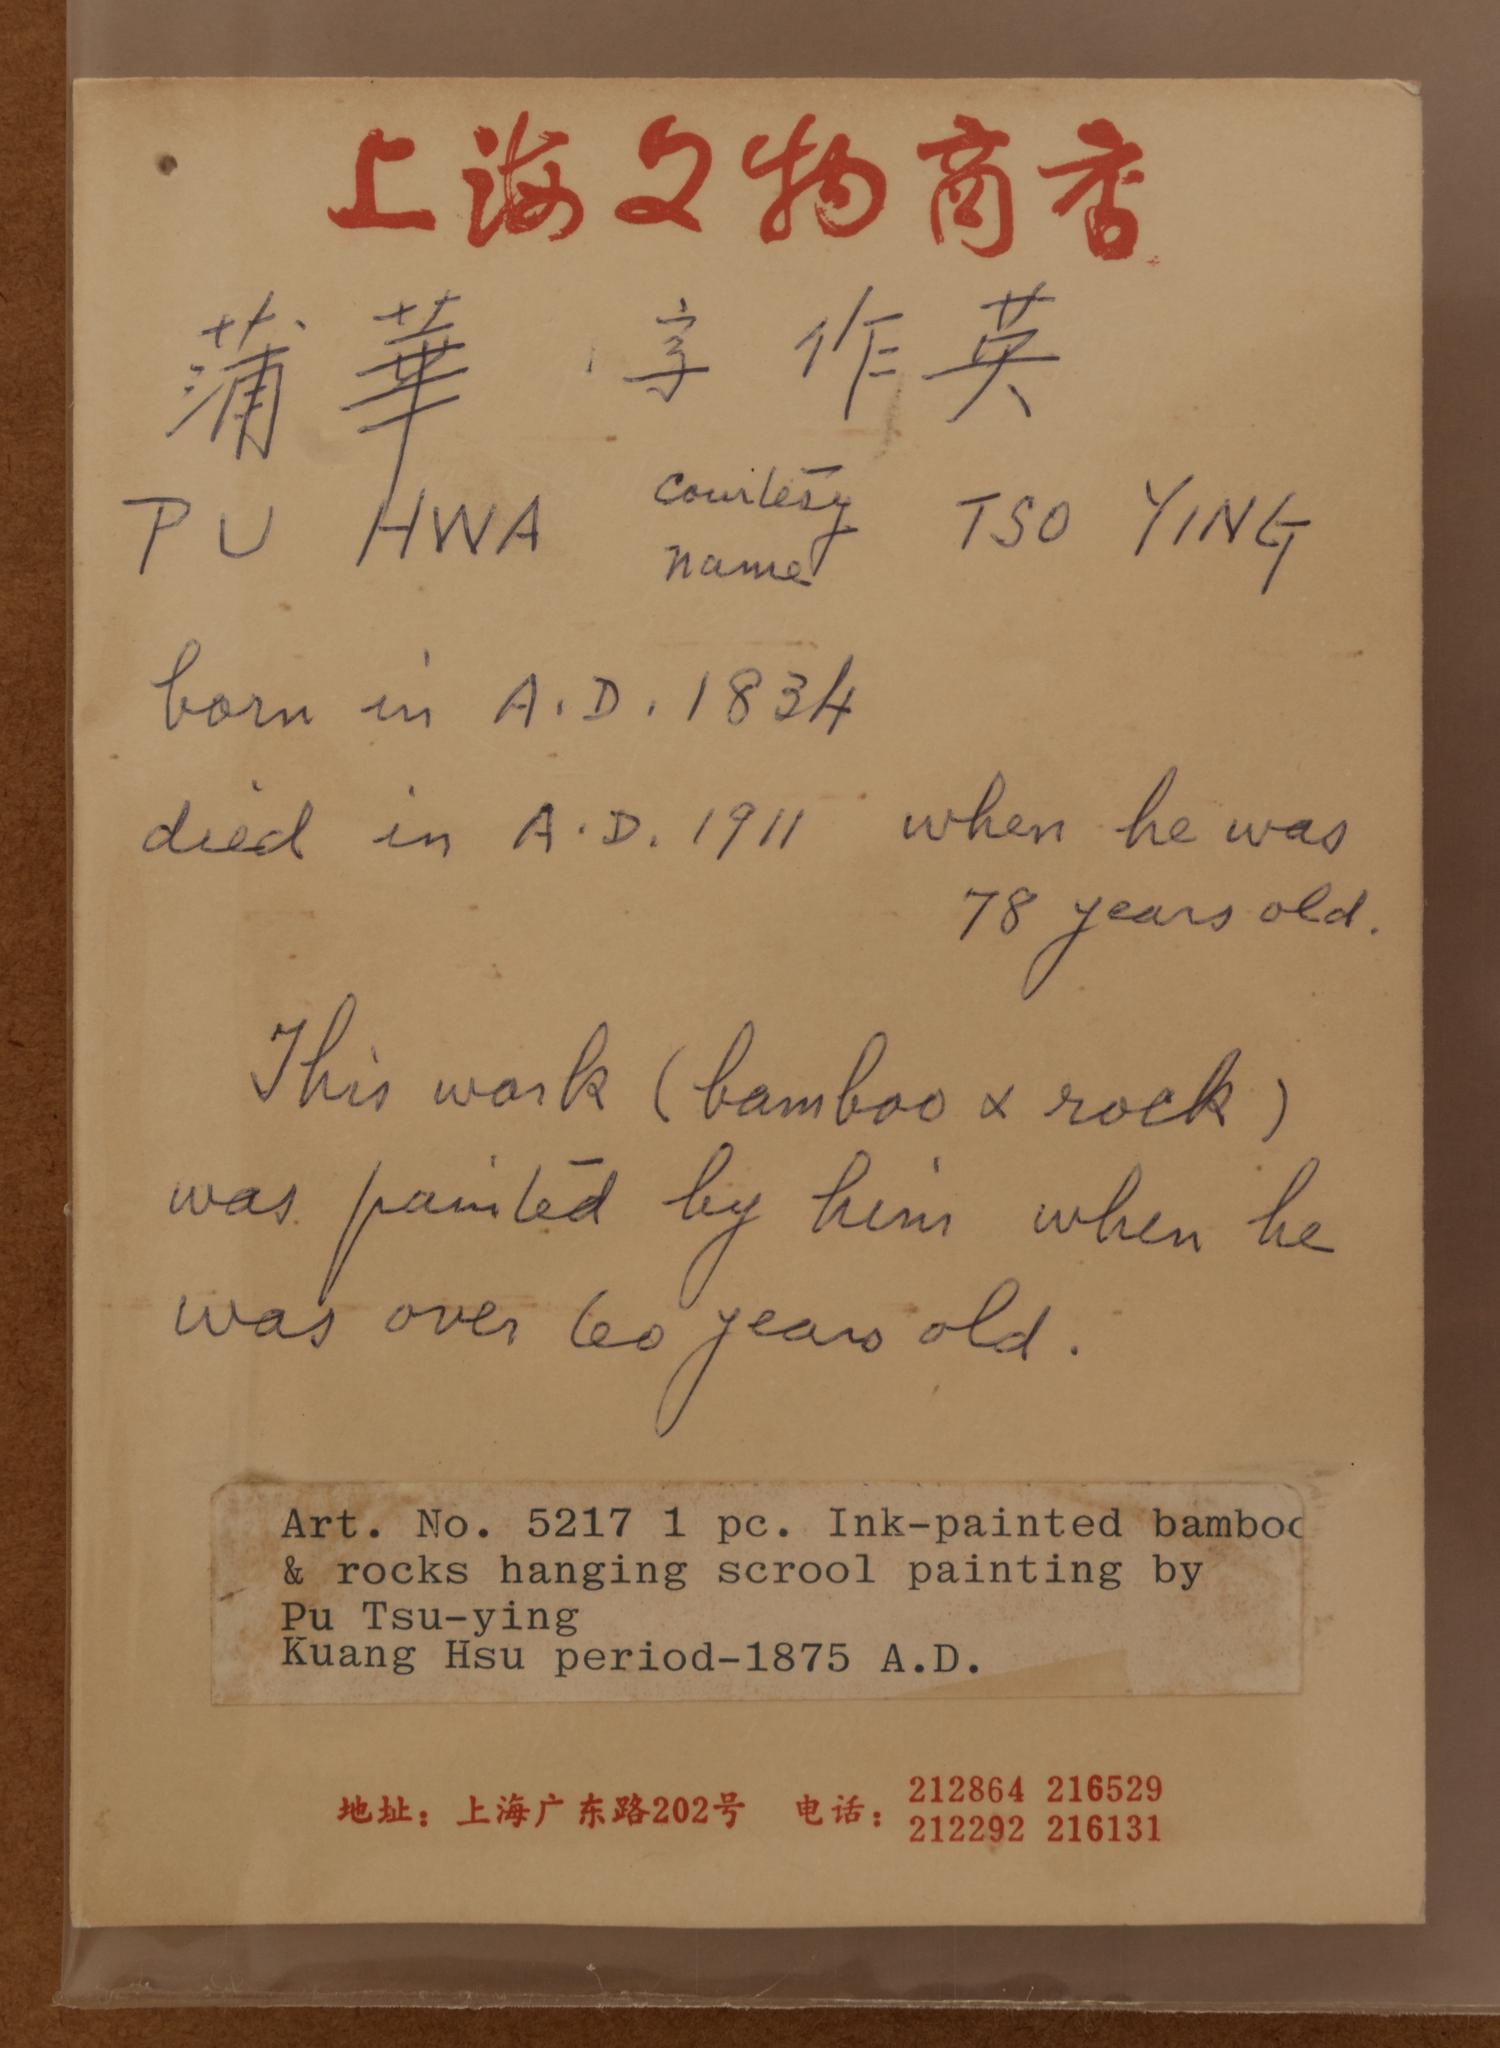 上海文物商店
蒲華 字 作英
PU HWA courtesy name TSO YING
born in A.D. 1834
died in A.D. 1911 when he was
78 years old.
This work (bamboo & rock)
was painted by him when he
was over 60 years old.
Art. No. 5217 1 pc. Ink-painted bamboo
& rocks hanging scrool painting by
Pu Tsu-ying
Kuang Hsu period-1875 A.D.
地址：上海广东路202号 电话：212864 216529
212292 216131